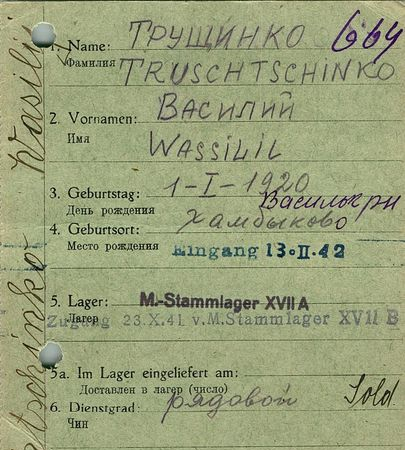 1. Name: ТРУЩИНКО 664
Фамилия TRUSCHTSCHINKO
2. Vornamen: ВАСИЛИЙ
Имя WASSILIL
3. Geburtstag: 1-I-1920
День рождения
4. Geburtsort: Хамбыково
Место рождения Eingang 13.II.42
5. Lager: M.-Stammlager XVII A
Лагер
Zugang 23.X.41 v.M.Stammlager XVII B
5a. Im Lager eingeliefert am:
Доставлен в лагер (число)
6. Dienstgrad: рядовой Sold.
Чин